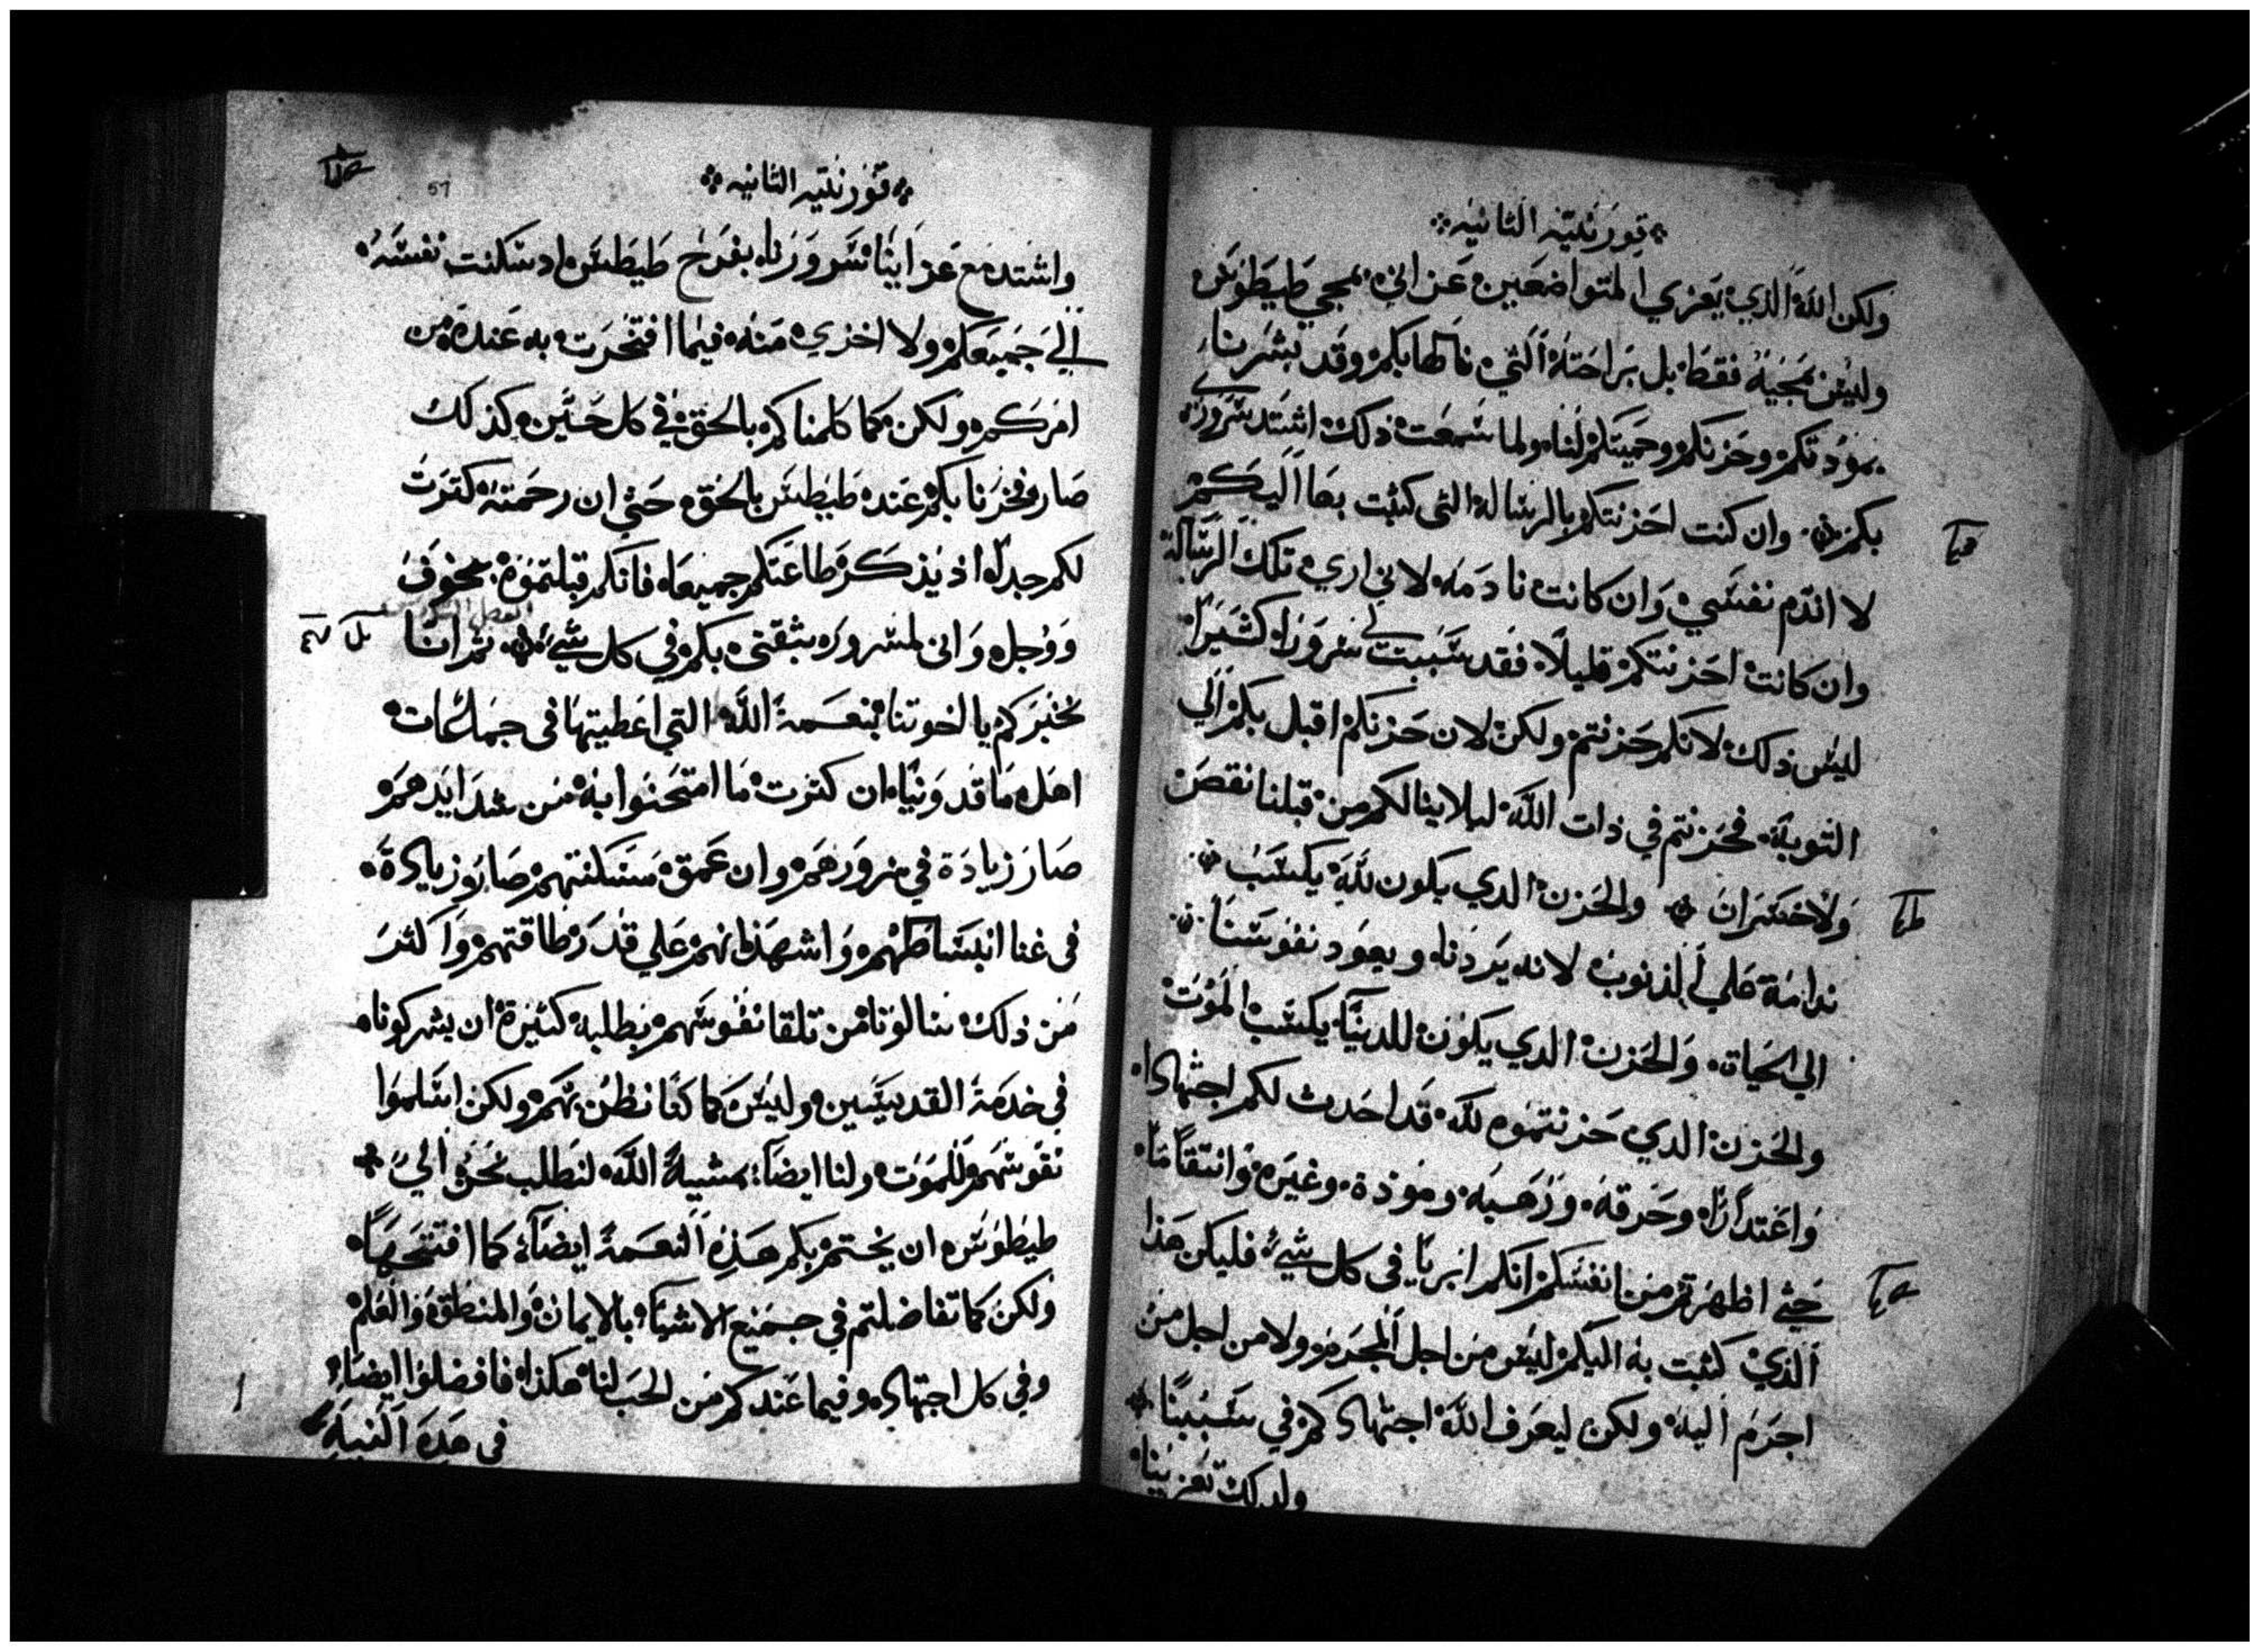 قورنتيه الثانيه
ولكن الله الذي يعزي المتواضعين عزاني بمجي طيطوس
وليس بمجيه فقط بل براحته التي نالها بكم وقد بشرنا
بمودتكم وحزنكم وحميتكم لنا ولما سمعت ذلك اشتد سروري
بكم وان كنت احزنتكم بالرسالة التي كتبت بها اليكم
لا اندم نفسي وان كانت نادمه لاني اري تلك الرسالة
وان كانت احزنتكم قليلا فقد سببت لي سرورا كثيرا
ليس ذلك لانكم حزنتم ولكن لان حزنكم اقبل بكم الي
التوبة فحزنتم في ذات الله ليلا ينالكم من قبلنا نقص
ولا خسران والحزن الدي يكون لله يكسب
ندامة علي الذنوب لانه يردنا ويعود نفوسنا
الي الحياة والحزن الدي يكون للدنيا يكسب الموت
والحزن الدي حزنتموه لله قد احدث لكم اجتهادا
واعتدارا وحرقه ورهبه ومودة وغيره وانتقاما
حتي اظهرتم من انفسكم انكم ابريا في كل شي فليكن هذا
الذي كتبت به اليكم ليس من اجل المجرم ولا من اجل من
اجرم اليه ولكن ليعرف الله اجتهادكم في سببنا
ولدلك تعزينا
قورنتيه الثانيه
57
واشتد مع عزاينا سرورنا بفرح طيطس اد سكنت نفسه
الي جميعكم ولا اخزي منه فيما افتخرت به عنده من
امركم ولكن كما كلمناكم بالحق في كل حين كذلك
صار فخرنا بكم عند طيطس بالحق حتي ان رحمته كترت
لكم جدا اذ يذكر طاعتكم جميعا فانكم قبلتموه بخوف
ووجل واني لمسرور بثقتي بكم في كل شي ثم انا
نخبركم يا اخوتنا بنعمة الله التي اعطيتها في جماعات
اهل ماقدونيا ان كترت ما امتحنوا به من شدايدهم
صار زيادة في سرورهم وان عمق مسكنتهم صار زيادة
في غنا انبساطهم واشهد انهم علي قدر طاقتهم واكثر
من ذلك سالونا من تلقا نفوسهم بطلبة كثيرة ان يشركونا
في خدمة القديسين وليس كما كنا نظن بهم ولكن اسلموا
نفوسهم للموت ولنا ايضا بمشية الله لنطلب نحن الي
طيطوس ان يختم بكم هذه النعمة ايضا كما افتتح بها
ولكن كما تفاضلتم في جميع الاشيا بالايمان والمنطق والعلم
وفي كل اجتهاد وفيما عندكم من الحب لنا هكذا فافضلوا ايضا
في هده النية